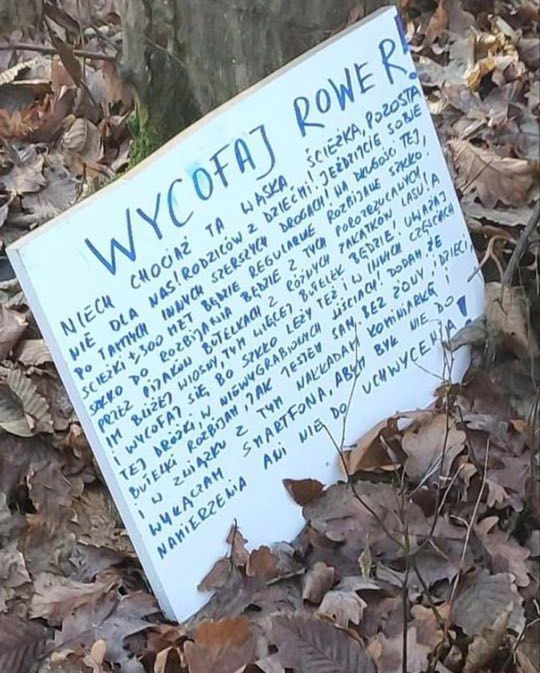 WYCOFAJ ROWER!
NIECH CHOCIAŻ TA WĄSKA ŚCIEŻKA, POZOSTA
NIE DLA NAS! RODZICÓW Z DZIEĆMI! JEŹDZIJCIE SOBIE
PO TAMTYCH INNYCH SZERSZYCH DROGACH! NA DŁUGOŚĆ TEJ,
ŚCIEŻKI ± 300 MET BĘDZIE REGULARNIE ROZBIJANE SZKŁO.
SZKŁO DO ROZBIJANIA BĘDZIE Z TYCH POROZRZUCANYCH
PRZEZ PIJAKÓW BUTELKACH Z RÓŻNYCH ZAKĄTKÓW LASU! A
IM BLIŻEJ WIOSNY, TYM WIĘCEJ BUTELEK BĘDZIE! UWAŻAJ
I WYCOFAJ SIĘ, BO SZKŁO LEŻY TEŻ I W INNYCH CZĘŚCIACH
TEJ DRÓŻKI, W NIEWYGRABIONYCH LIŚCIACH! DODAM, ŻE
BUTELKI ROZBIJAM, JAK JESTEM SAM, BEZ ŻONY I DZIECI,
I W ZWIĄZKU Z TYM NAKŁADAM KOMINIARKĘ I
WYŁĄCZAM SMARTFONA, ABYM BYŁ NIE DO
NAMIERZENIA ANI NIE DO UCHWYCENIA!